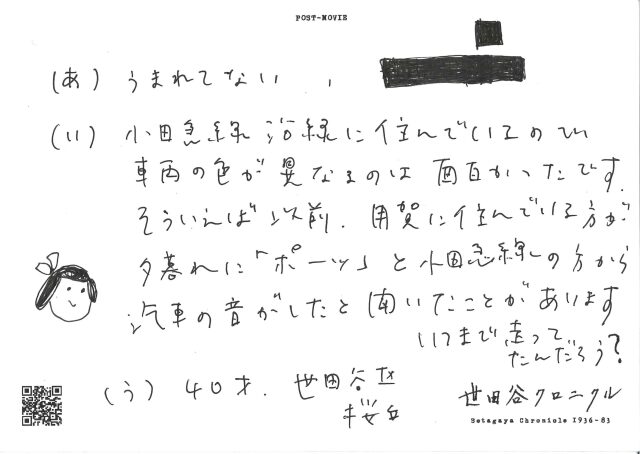 POST-MOVIE
(あ) うまれてない、
(い) 小田急線沿線に住んでいるので
車両の色が異なるのは面白かったです.
そういえば以前、用賀に住んでいる方が
夕暮れに「ポーッ」と小田急線の方から
汽車の音がしたと聞いたことがあります
いつまで走って
たんだろう?
(う) 40才. 世田谷区
桜丘
世田谷クロニクル
Setagaya Chronicle 1936-83